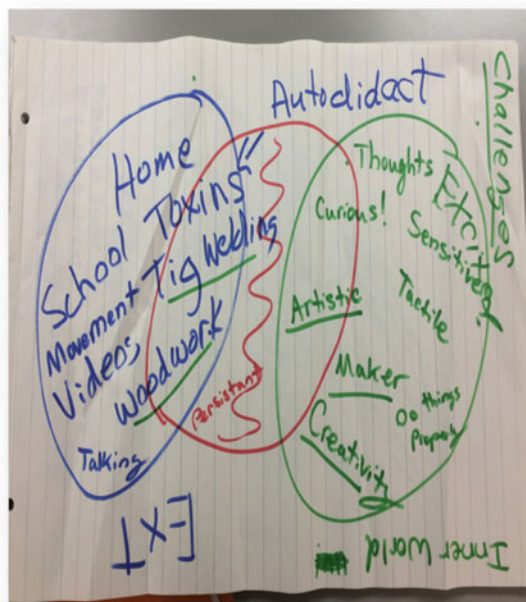 Autodidact
Challenges
Home
School Toxins"
Movement Tig Welding
Videos,
Woodwork
Talking
Persistant
Thoughts
Excited!
Curious!
Sensitive
Artistic
Tactile
Maker
Do things
Properly
Creativity
EXT
Inner World